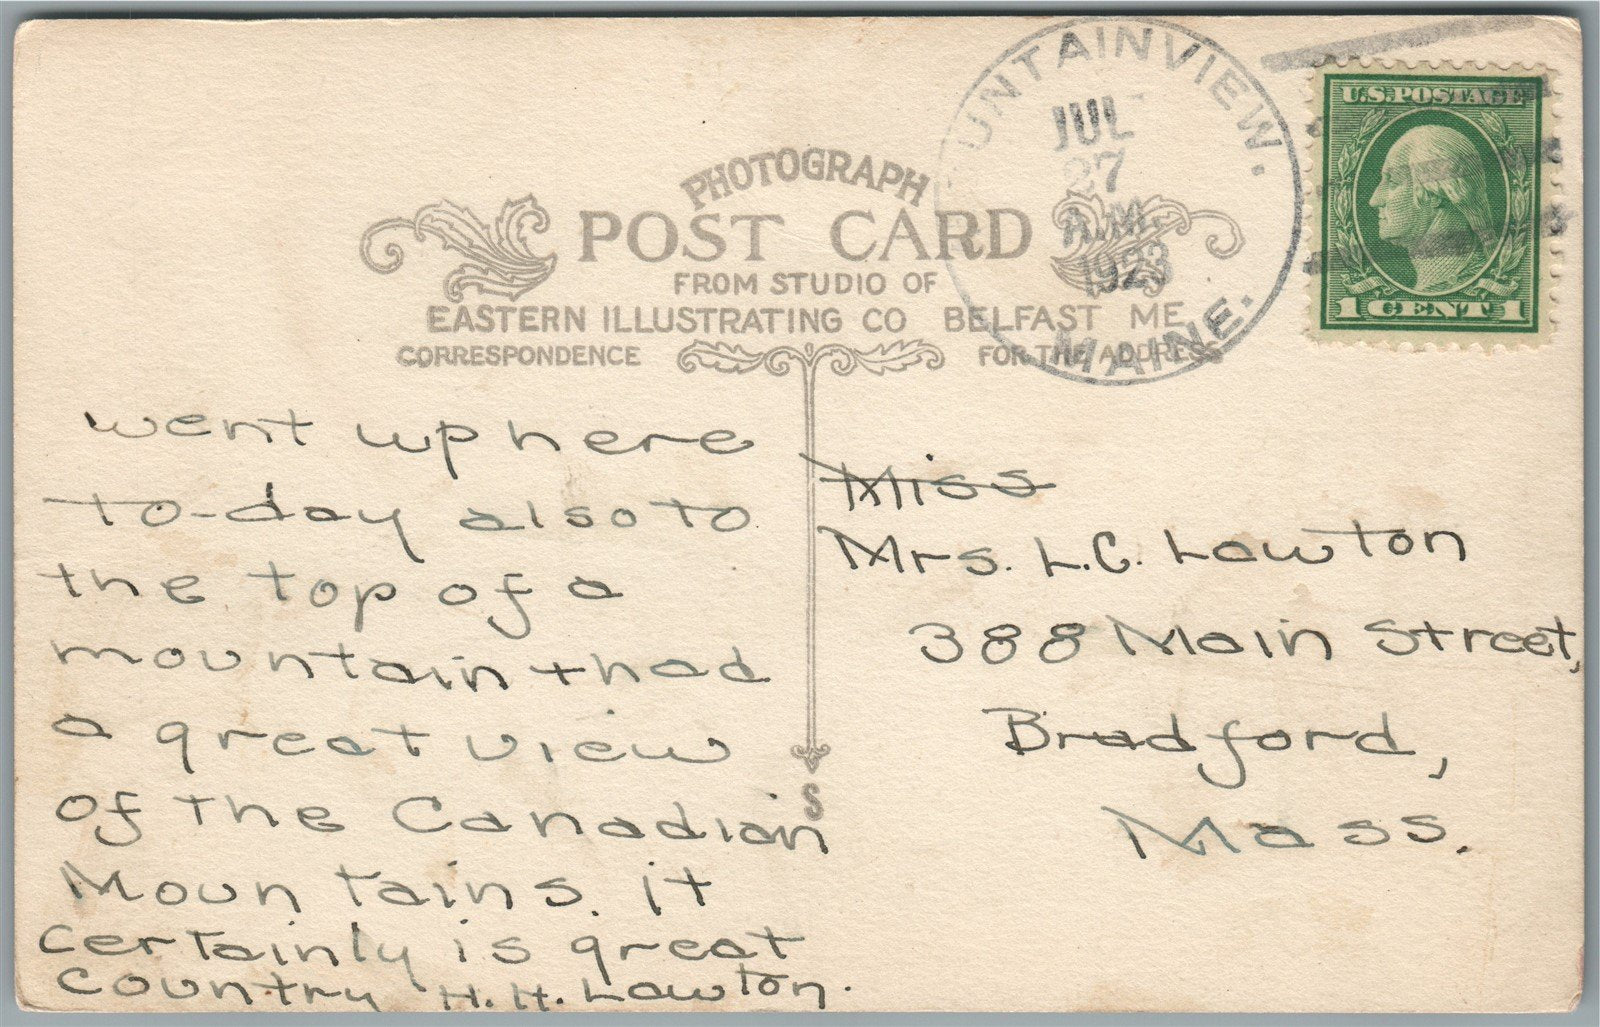 UNTAINVIEW.
JUL
27
A.M.
1923
MAINE.
U.S. POSTAGE
1 CENT 1
PHOTOGRAPH
POST CARD
FROM STUDIO OF
EASTERN ILLUSTRATING CO BELFAST ME
CORRESPONDENCE FOR THE ADDRESS
went up here
to-day also to
the top of a
mountain + had
a great view
of the Canadian
Mountains. it
certainly is great
country H.H. Lawton.
S
Miss
Mrs. L.C. Lawton
388 Main Street,
Bradford,
Mass.